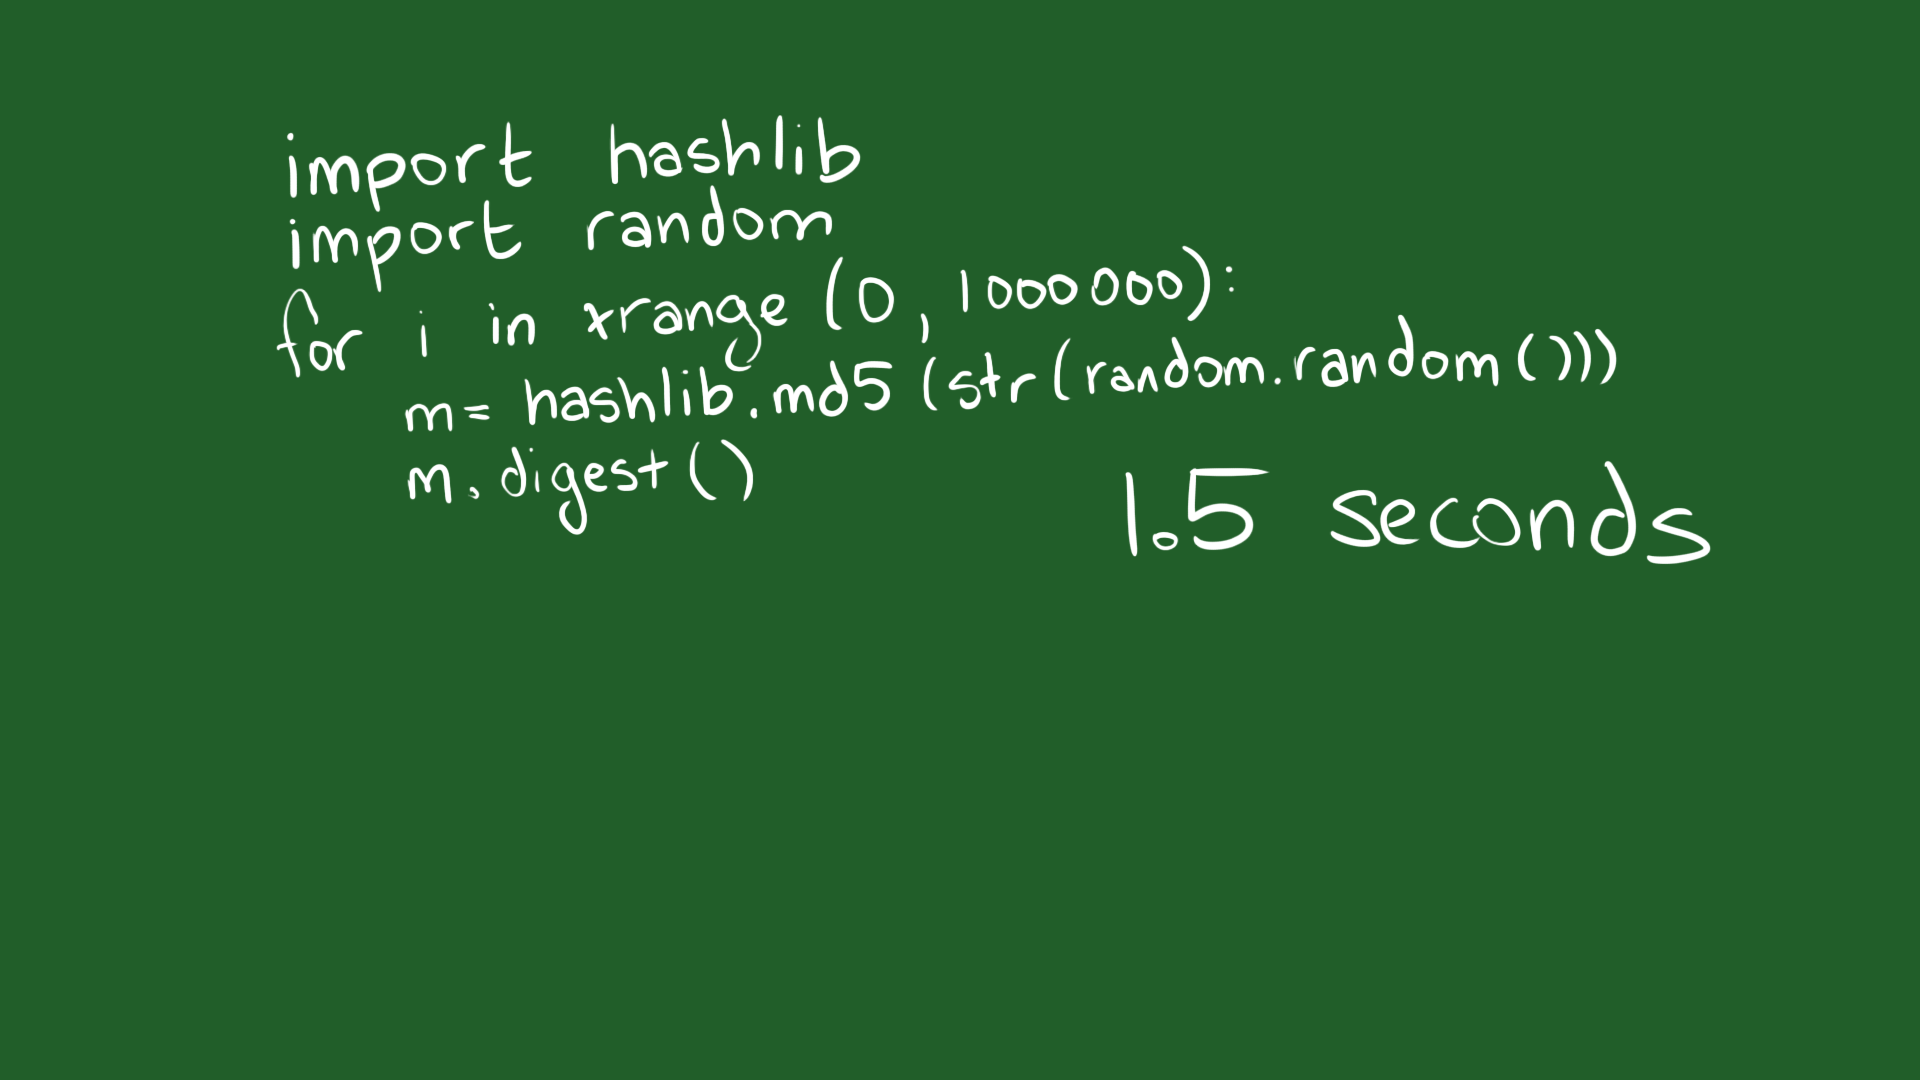 import hashlib
import random
for i in xrange (0, 1000000):
m= hashlib.md5 (str(random.random()))
m.digest()
1.5 seconds